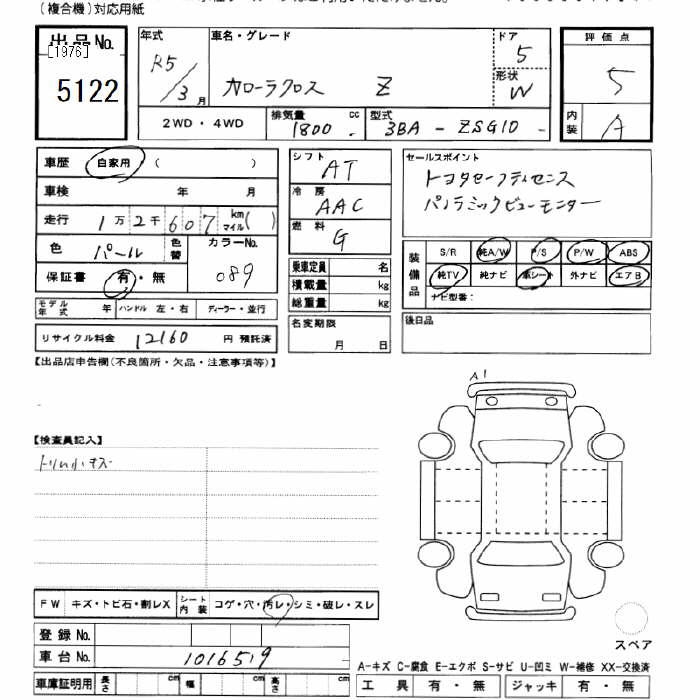 (複合機)対応用紙
出品No.
[1976]
5122
年式
R5/3月
車名・グレード
カローラクロス Z
ドア
5
形状
W
評価点
5
内装
A
2WD・4WD
排気量
1800 cc
型式
3BA - ZSG10 -
車歴 自家用 ( )
車検 年 月
走行 1万2千607 km マイル( )
色 パール 色替 カラーNo. 089
保証書 有・無
モデル年式 年 ハンドル 左・右 ディーラー・並行
リサイクル料金 12160 円 預託済
シフト
AT
冷房
AAC
燃料
G
乗車定員 名
積載量 kg
総重量 kg
名変期限
月 日
セールスポイント
トヨタセーフティセンス
パノラミックビューモニター
装備品
S/R 純A/W P/S P/W ABS
純TV 純ナビ 革シート 外ナビ エアB
ナビ型番:
後日品
【出品店申告欄(不良箇所・欠品・注意事項等)】
A1
【検査員記入】
トリム小キズ
FW キズ・トビ石・割レX シート内装 コゲ・穴・汚レ・シミ・破レ・スレ
登録No.
車台No. 1016519
車庫証明用 長さ cm 幅 cm 高さ cm
スペア
A-キズ C-腐食 E-エクボ S-サビ U-凹ミ W-補修 XX-交換済
工具 有・無 ジャッキ 有・無